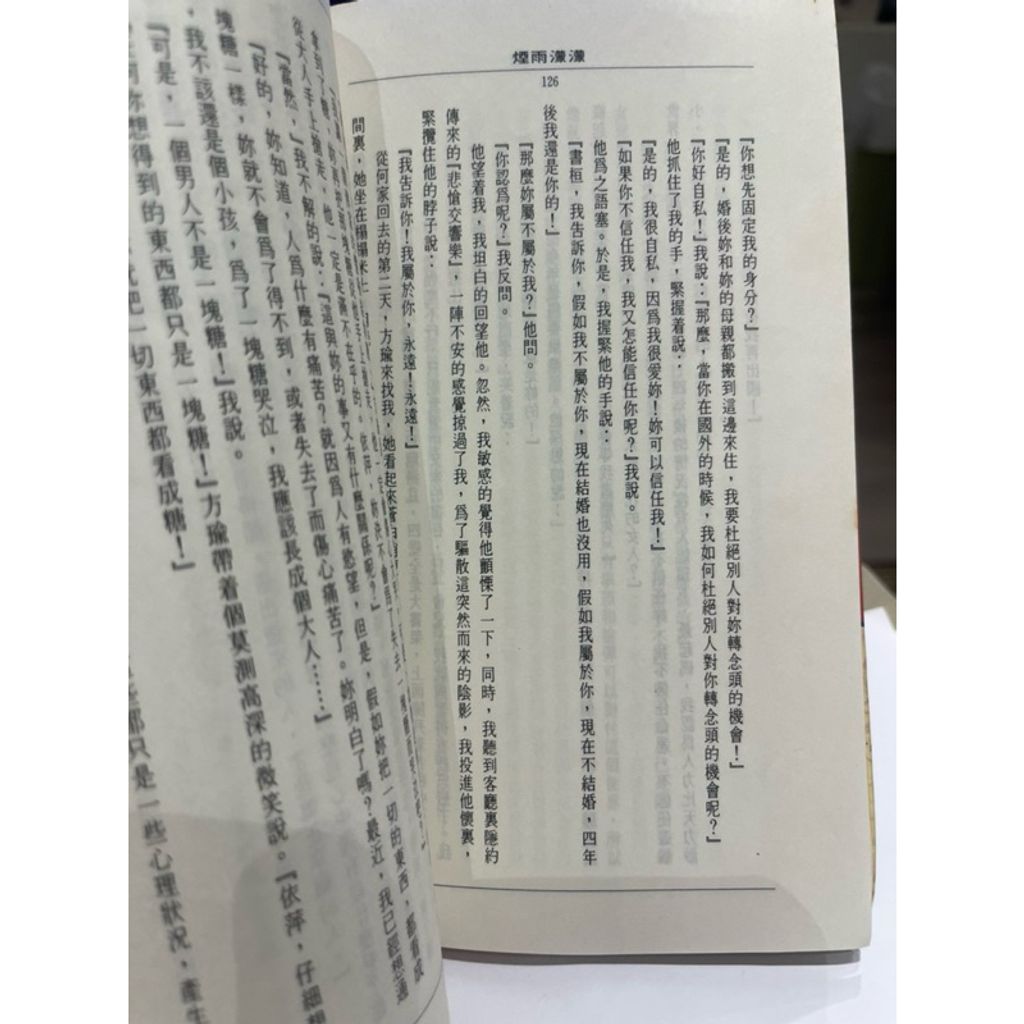 煙雨濛濛
126
『你想先固定我的身分？』
『是的，婚後妳和妳的母親都搬到這邊來住，我要杜絕別人對妳轉念頭的機會！』
『你好自私！』我說：『那麼，當你在國外的時候，我如何杜絕別人對你轉念頭的機會呢？』
他抓住了我的手，緊握着說：
『是的，我很自私，因爲我很愛妳！妳可以信任我！』
『如果你不信任我，我又怎能信任你呢？』我說。
他爲之語塞。於是，我握緊他的手說：
『書桓，我告訴你，假如我不屬於你，現在結婚也沒用，假如我屬於你，現在不結婚，四年
後我還是你的！』
『那麼妳屬不屬於我？』他問。
『你認爲呢？』我反問。
他望着我，我坦白的回望他。忽然，我敏感的覺得他顫慄了一下，同時，我聽到客廳裏隱約
傳來的『悲愴交響樂』，一陣不安的感覺掠過了我，爲了驅散這突然而來的陰影，我投進他懷裏，
緊攬住他的脖子說：
『我告訴你！我屬於你，永遠！永遠！』
從何家回去的第二天，方瑜來找我，她看起來蒼白
間裏，她坐在榻榻米上
從大人手上搶走，他一定是痛不在乎的。依萍，妳決不會爲了失去一塊糖而哭泣吧？』
『當然，』我不解的說：『這與妳的事又有什麼關係呢？』
『好的，妳知道，人爲什麼有痛苦？就因爲人有慾望，但是，假如妳把一切的東西，都看成
塊糖一樣，妳就不會爲了得不到，或者失去了而傷心痛苦了。妳明白了嗎？最近，我已經想通
，我不該還是個小孩，爲了一塊糖哭泣，我應該長成個大人……』
『可是，一個男人不是一塊糖！』我說。
想得到的東西都只是一塊糖！』方瑜帶着個莫測高深的微笑說。『依萍，仔細想
把一切東西都看成糖！』
都只是一些心理狀況，產生